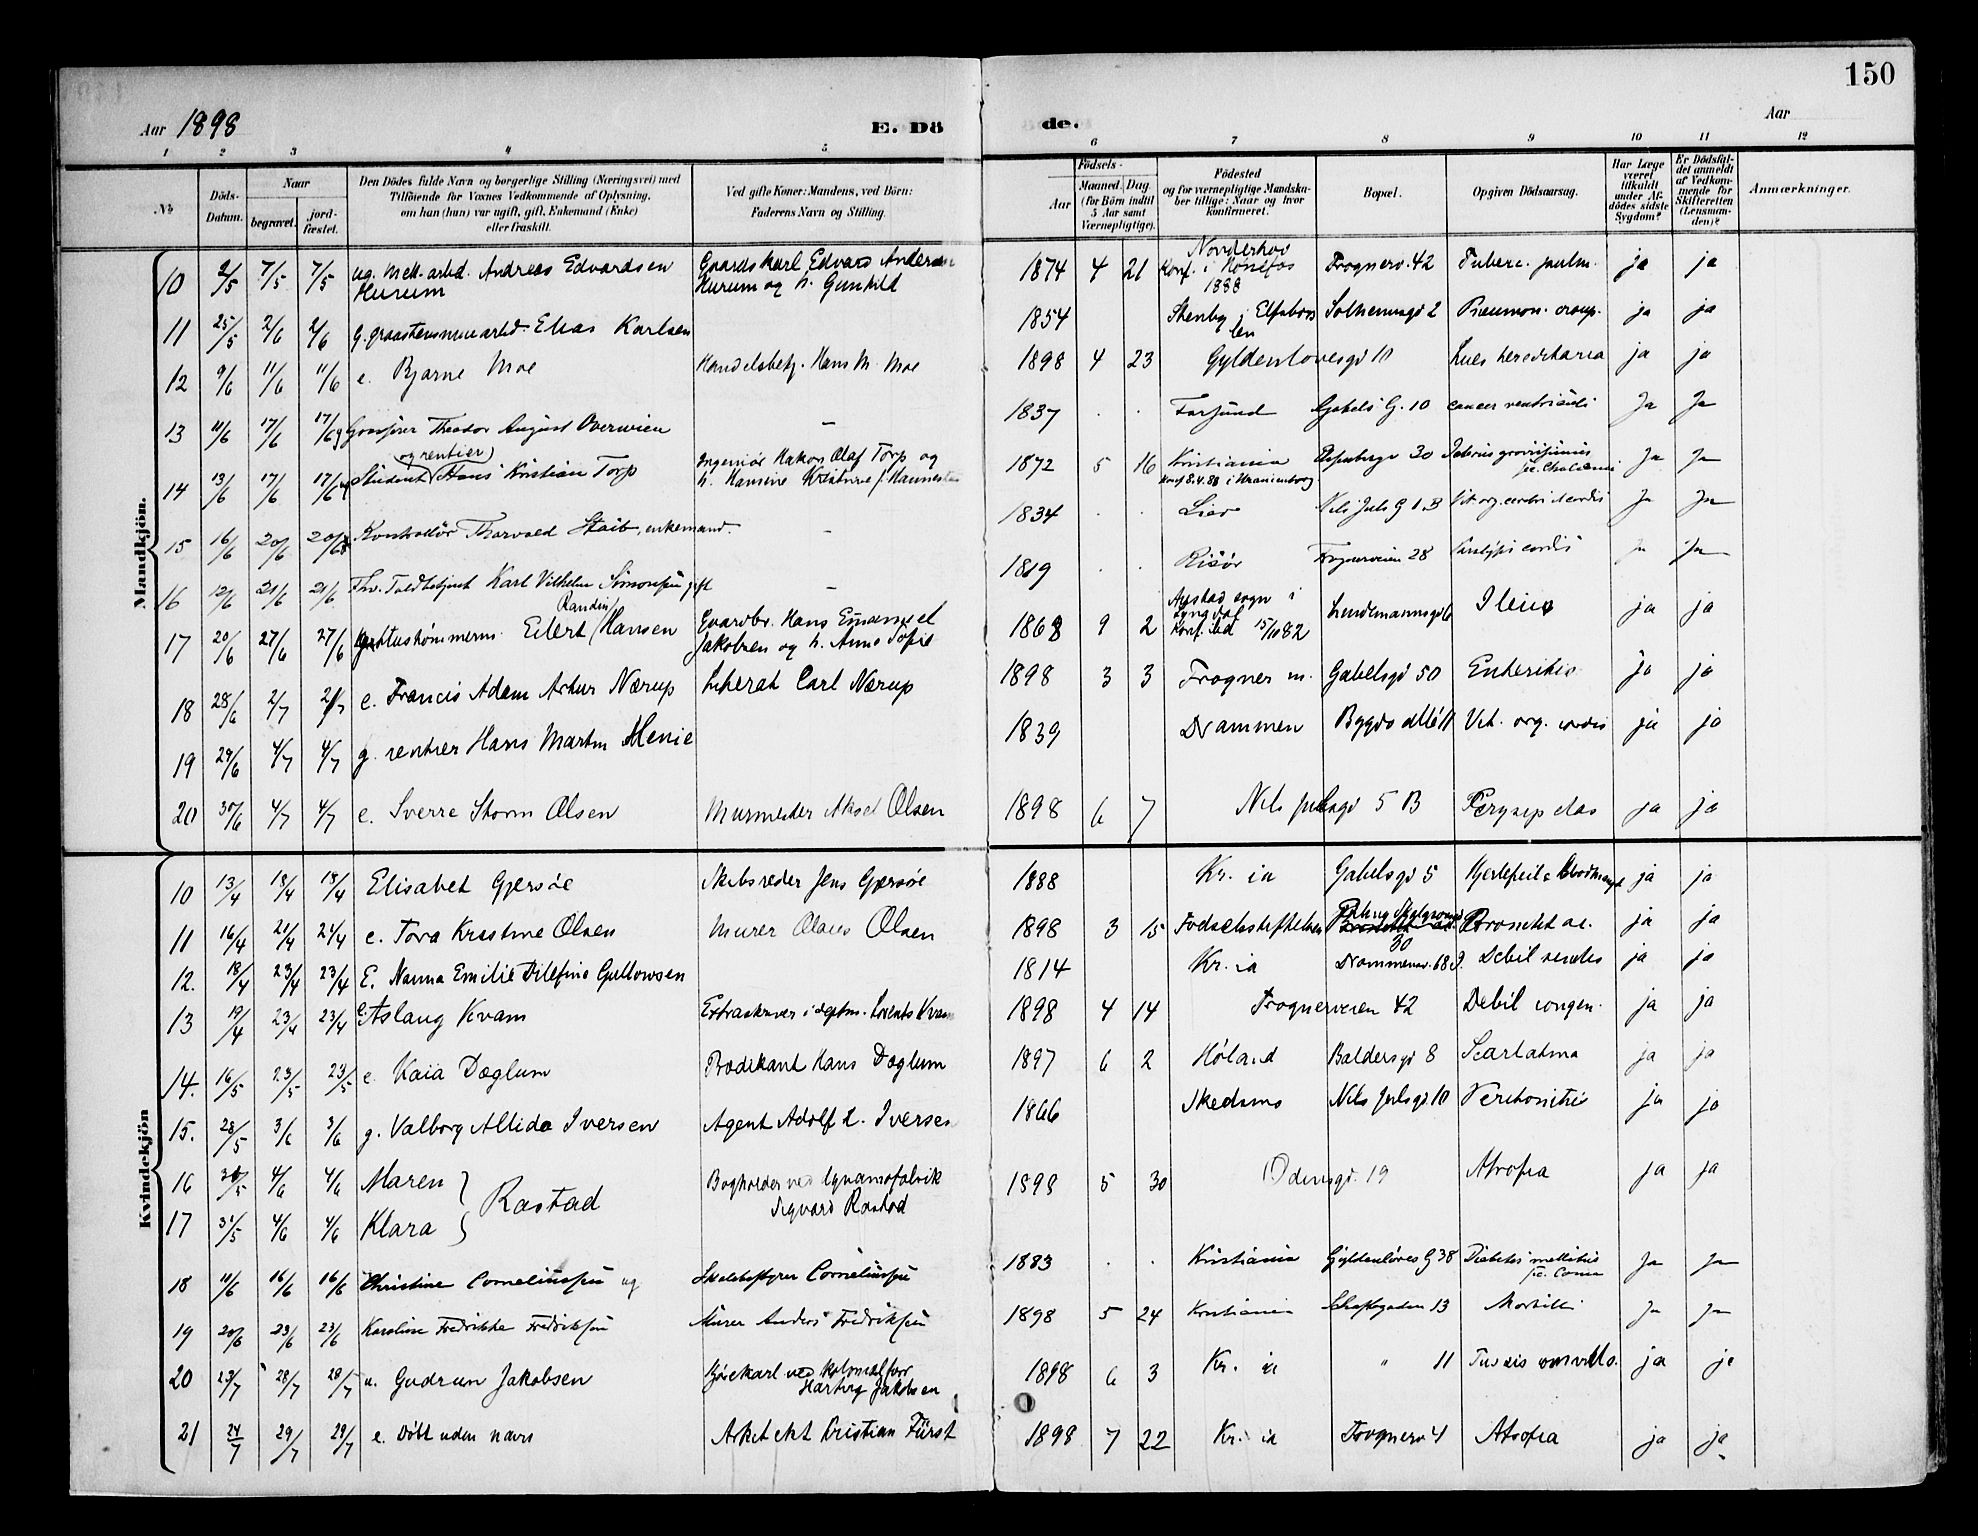 150
Aar 1898 E. Dö de. Aar
1 2 3 4 5 6 7 8 9 10 11 12
№ Döds-Datum. Naar begravet. jord-fæstet. Den Dödes fulde Navn og borgerlige Stilling (Næringsvei) med Tilföiende for Voxnes Vedkommende af Oplysning, om han (hun) var ugift, gift, Enkemand (Enke) eller fraskilt. Ved gifte Koner: Mandens, ved Börn: Faderens Navn og Stilling. Födsels- Aar Maaned. Dag. (for Börn indtil 5 Aar samt Værnepligtige). Födested og for værnepligtige Mandskaber tillige: Naar og hvor konfirmeret. Bopæl. Opgiven Dödsaarsag. Har Læge været tilkaldt under Afdödes sidste Sygdom? Er Dödsfaldet anmeldt af Vedkommende for Skifteretten (Lensmanden)? Anmærkninger.
Mandkjön.
10 2/5 7/5 7/5 ug. mek. arbd. Andreas Edvardsen Hurum Gaardskarl Edvard Andersen Hurum og h. Gunhild 1874 4 21 Norderhov Konf. i Hønefos 1888 Frognerv. 42 Tuberc. pulm. ja ja
11 25/5 2/6 2/6 g. graastensmuearbd. Elias Karlsen 1854 Stenby i Elfsborslen 2 Pneumon. croup. ja ja
12 9/6 11/6 11/6 e. Bjarne Moe Handelsbetj. Hans M. Moe 1898 4 23 Gyldenlovesgd 10 Lues hereditaria ja ja
13 11/6 17/6 17/6 Theodor August Overwien - 1837 . . Farsund Gabels G. 10 cancer ventriculi Ja Ja
14 13/6 17/6 17/6 Student (og rentier) Hans Kristian Torp Ingeniør Hakon Olaf Torp og h. Hansine Kristine f. 1872 5 16 Kristiania konf 8.4.88 i Uranienborg 30 Ja Ja
15 16/6 20/6 20/6 Kontrollør Thorvald Staib, enkemand. - 1834 . . Lier Nils Juls G 1.B Vit. org. cordis Ja Ja
16 12/6 21/6 21/6 Fhv. Toldbetjent Karl Vilhelm Simonsen gift - 1819 . . Risør Frognerveien 28 Paralysis cordis Ja Ja
17 20/6 27/6 27/6 Eilert (Randin) Hansen Gaardbr. Hans Emanuel Jakobsen og h. Anne Sofie 1868 9 2 sogn i Lyngdal Konf. ibd 15/10 82 Lindemannsgd 6 Ileus ja ja
18 28/6 2/7 2/7 e. Francis Adam Artur Nærup Literat Carl Nærup 1898 3 3 Frogner m. Gabelsgd 50 Enteritis ja ja
19 29/6 4/7 4/7 g. rentier Hans Martin Menie 1839 Drammen Bygdø allé 11 Vit. org. cordis ja ja
20 30/6 4/7 4/7 e. Sverre Storm Olsen Murmester Aksel Olsen 1898 6 7 Nils Julsgd 5 B Erysipelas ja ja
Kvindekjön
10 13/4 18/4 18/4 Elisabet Gjersøe Skibsreder Jens Gjersøe 1888 Kr. ia Gabelsgd 5 Hjertefeil & Blodmangel ja ja
11 16/4 21/4 21/4 e. Tora Kristine Olsen Murer Olaus Olsen 1898 3 15 Fødselsstiftelsen 30 Bronchit ac. ja ja
12. 18/4 23/4 23/4 E. Nanna Emilie Gullowsen 1814 Kr. ia Drammensv. 68 Debil senilis ja ja
13 19/4 23/4 23/4 Aslaug Kvam Extraskriver i deptm. Lorents Kvam 1898 4 14 Frognerveien 42 Debil congen. ja ja
14. 16/5 23/5 23/5 e. Kaia Dæglum Prædikant Hans Dæglum 1897 6 2 Høland Baldersgd 8 Scarlatina ja ja
15. 28/5 3/6 3/6 g. Valborg Allida Iversen Agent Adolf L. Iversen 1866 Skedsmo Nils Julsgd 10 Peritonitis ja ja
16 30/5 4/6 4/6 Maren } Rastad Bogholder ved Dynamofabrik Sigvard Rastad 1898 5 30 Odinsgd. 19 Atrofia ja ja
17 31/5 4/6 4/6 Klara }
18 10/6 16/6 16/6 Christine Corneliussen ug Skolebestyrer Corneliussen 1883 . . Kristiania Gyldenløves G 38 Diabetes mellitus Coma Ja Ja
19 20/6 23/6 23/6 Karoline Fredrikke Fredriksen Murer Anders Fredriksen 1898 5 24 Kristiania 13 Morbilli Ja Ja
20 23/7 28/7 28/7 u. Gudrun Jakobsen Kjørekarl ved Kolonialforr Hartvig Jakobsen 1898 6 3 Kr. ia " 11 Tussis convuls. ja ja
21 24/7 29/7 29/7 e. Døbt uden navn Arkitekt Kristian Fürst 1898 7 22 Kr. ia Frognerv 4 Atrofia ja ja